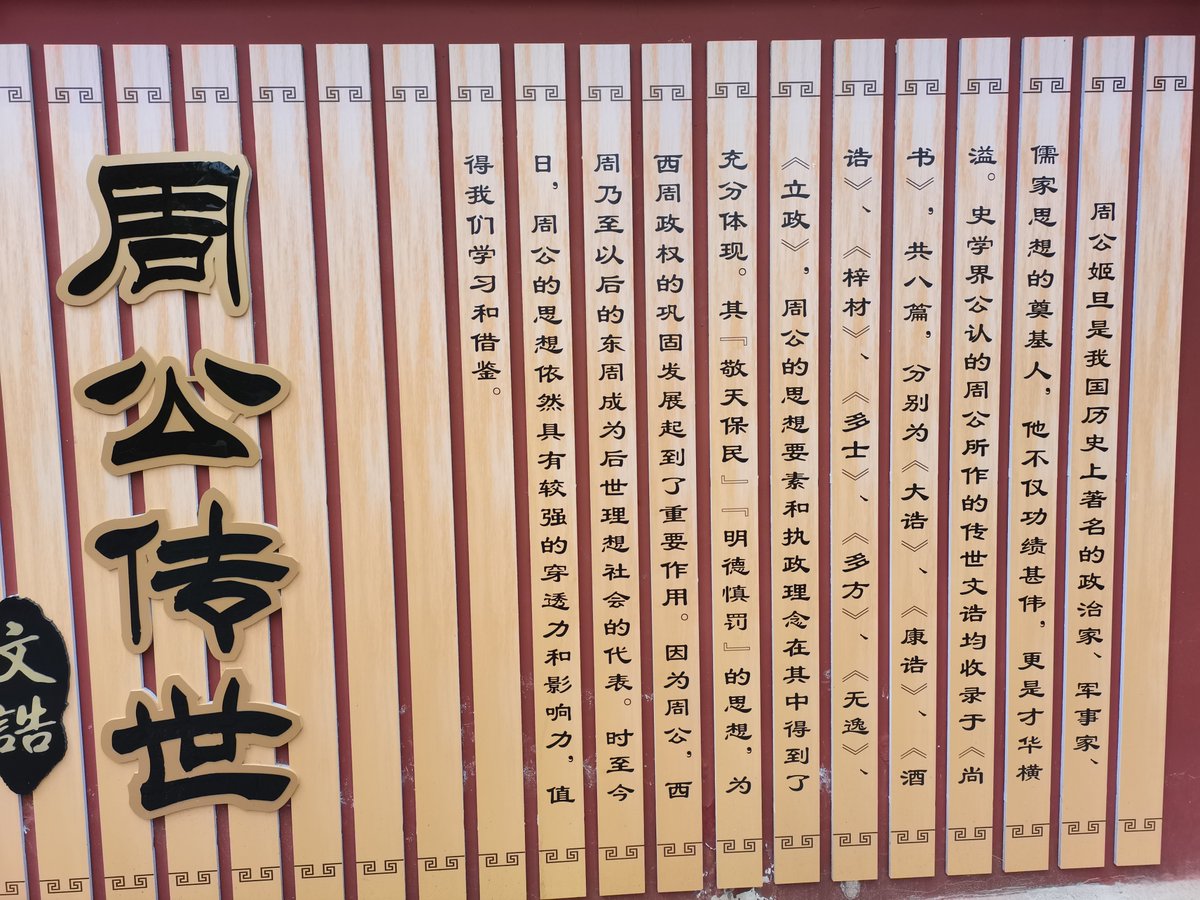 周公姬旦是我国历史上著名的政治家、军事家、
儒家思想的奠基人，他不仅功绩甚伟，更是才华横
溢。史学界公认的周公所作的传世文诰均收录于《尚
书》，共八篇，分别为《大诰》、《康诰》、《酒
诰》、《梓材》、《多士》、《多方》、《无逸》、
《立政》，周公的思想要素和执政理念在其中得到了
充分体现。其『敬天保民』『明德慎罚』的思想，为
西周政权的巩固发展起到了重要作用。因为周公，西
周乃至以后的东周成为后世理想社会的代表。时至今
日，周公的思想依然具有较强的穿透力和影响力，值
得我们学习和借鉴。
周公传世
文誥